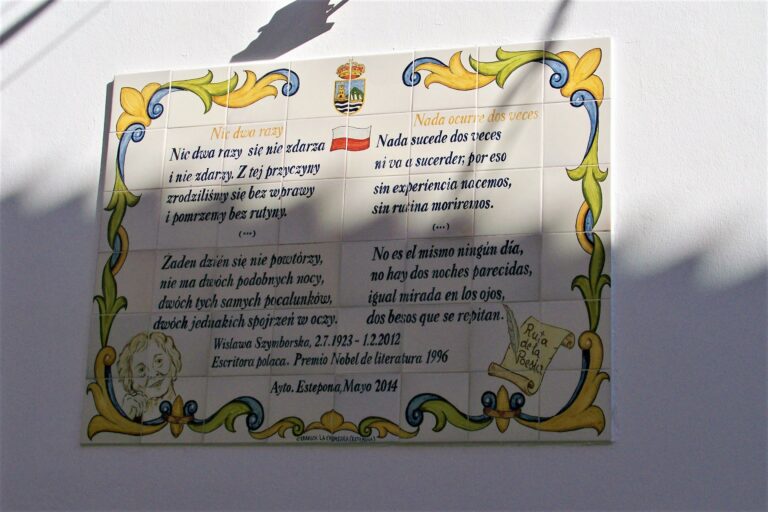 Nic dwa razy
Nic dwa razy się nie zdarza
i nie zdarzy. Z tej przyczyny
zrodziliśmy się bez wprawy
i pomrzemy bez rutyny.
(...)
Zaden dzién się nie powtórzy,
nie ma dwóch podobnych nocy,
dwóch tych samych pocalunków,
dwóch jednakich spojrzeń w oczy.
Nada ocurre dos veces
Nada sucede dos veces
ni va a sucerder, por eso
sin experiencia nacemos,
sin rutina moriremos.
(...)
No es el mismo ningún día,
no hay dos noches parecidas,
igual mirada en los ojos,
dos besos que se repitan.
Wislawa Szymborska, 2.7.1923 - 1.2.2012
Escritora polaca. Premio Nobel de literatura 1996
Ayto. Estepona, Mayo 2014
Ruta
de la
Poesía